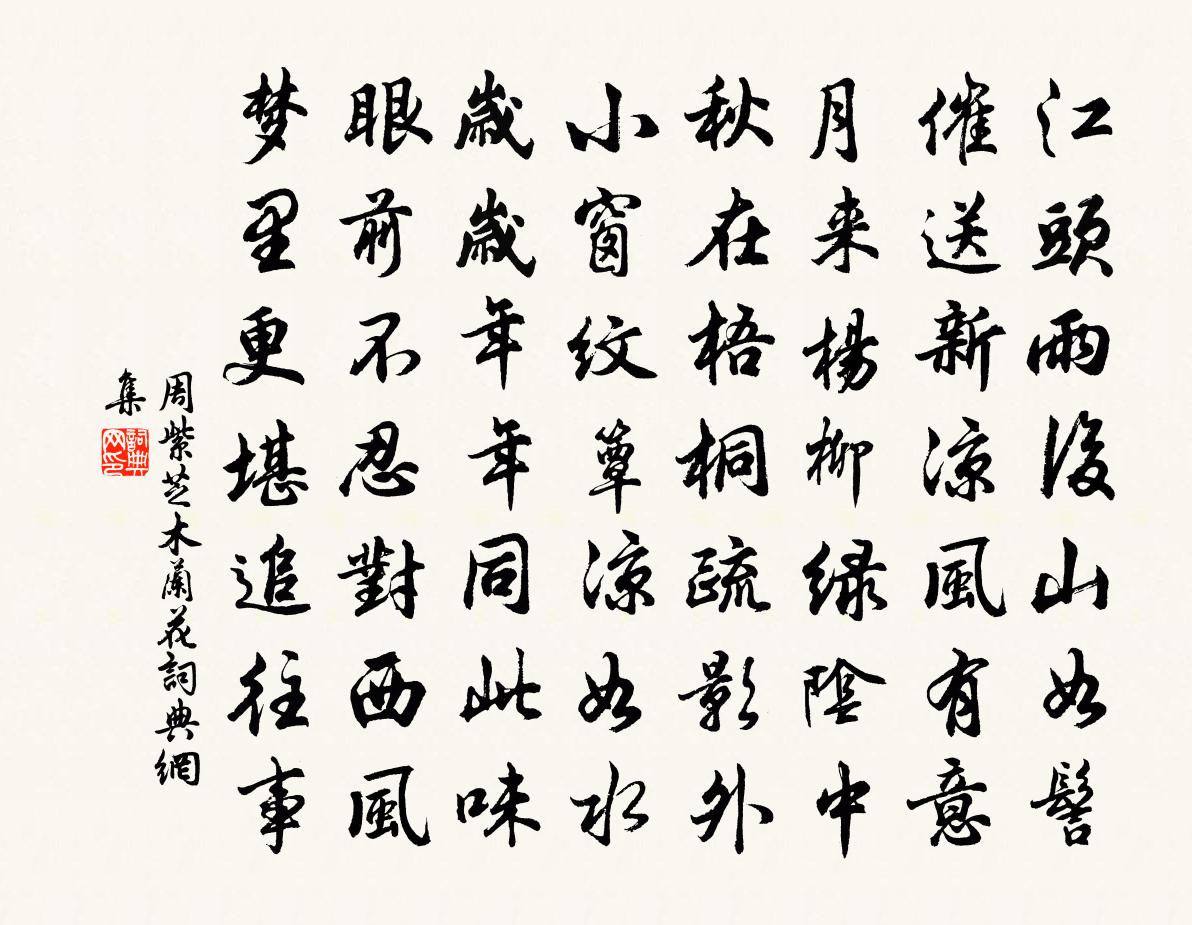 江頭雨後山如髻
催送新涼風有意
月来楊柳緑陰中
秋在梧桐疏影外
小窗紋簟涼如水
歲歲年年同此味
眼前不忍對西風
梦里更堪追往事
周紫芝木蘭花詞典網
集
詞典网印